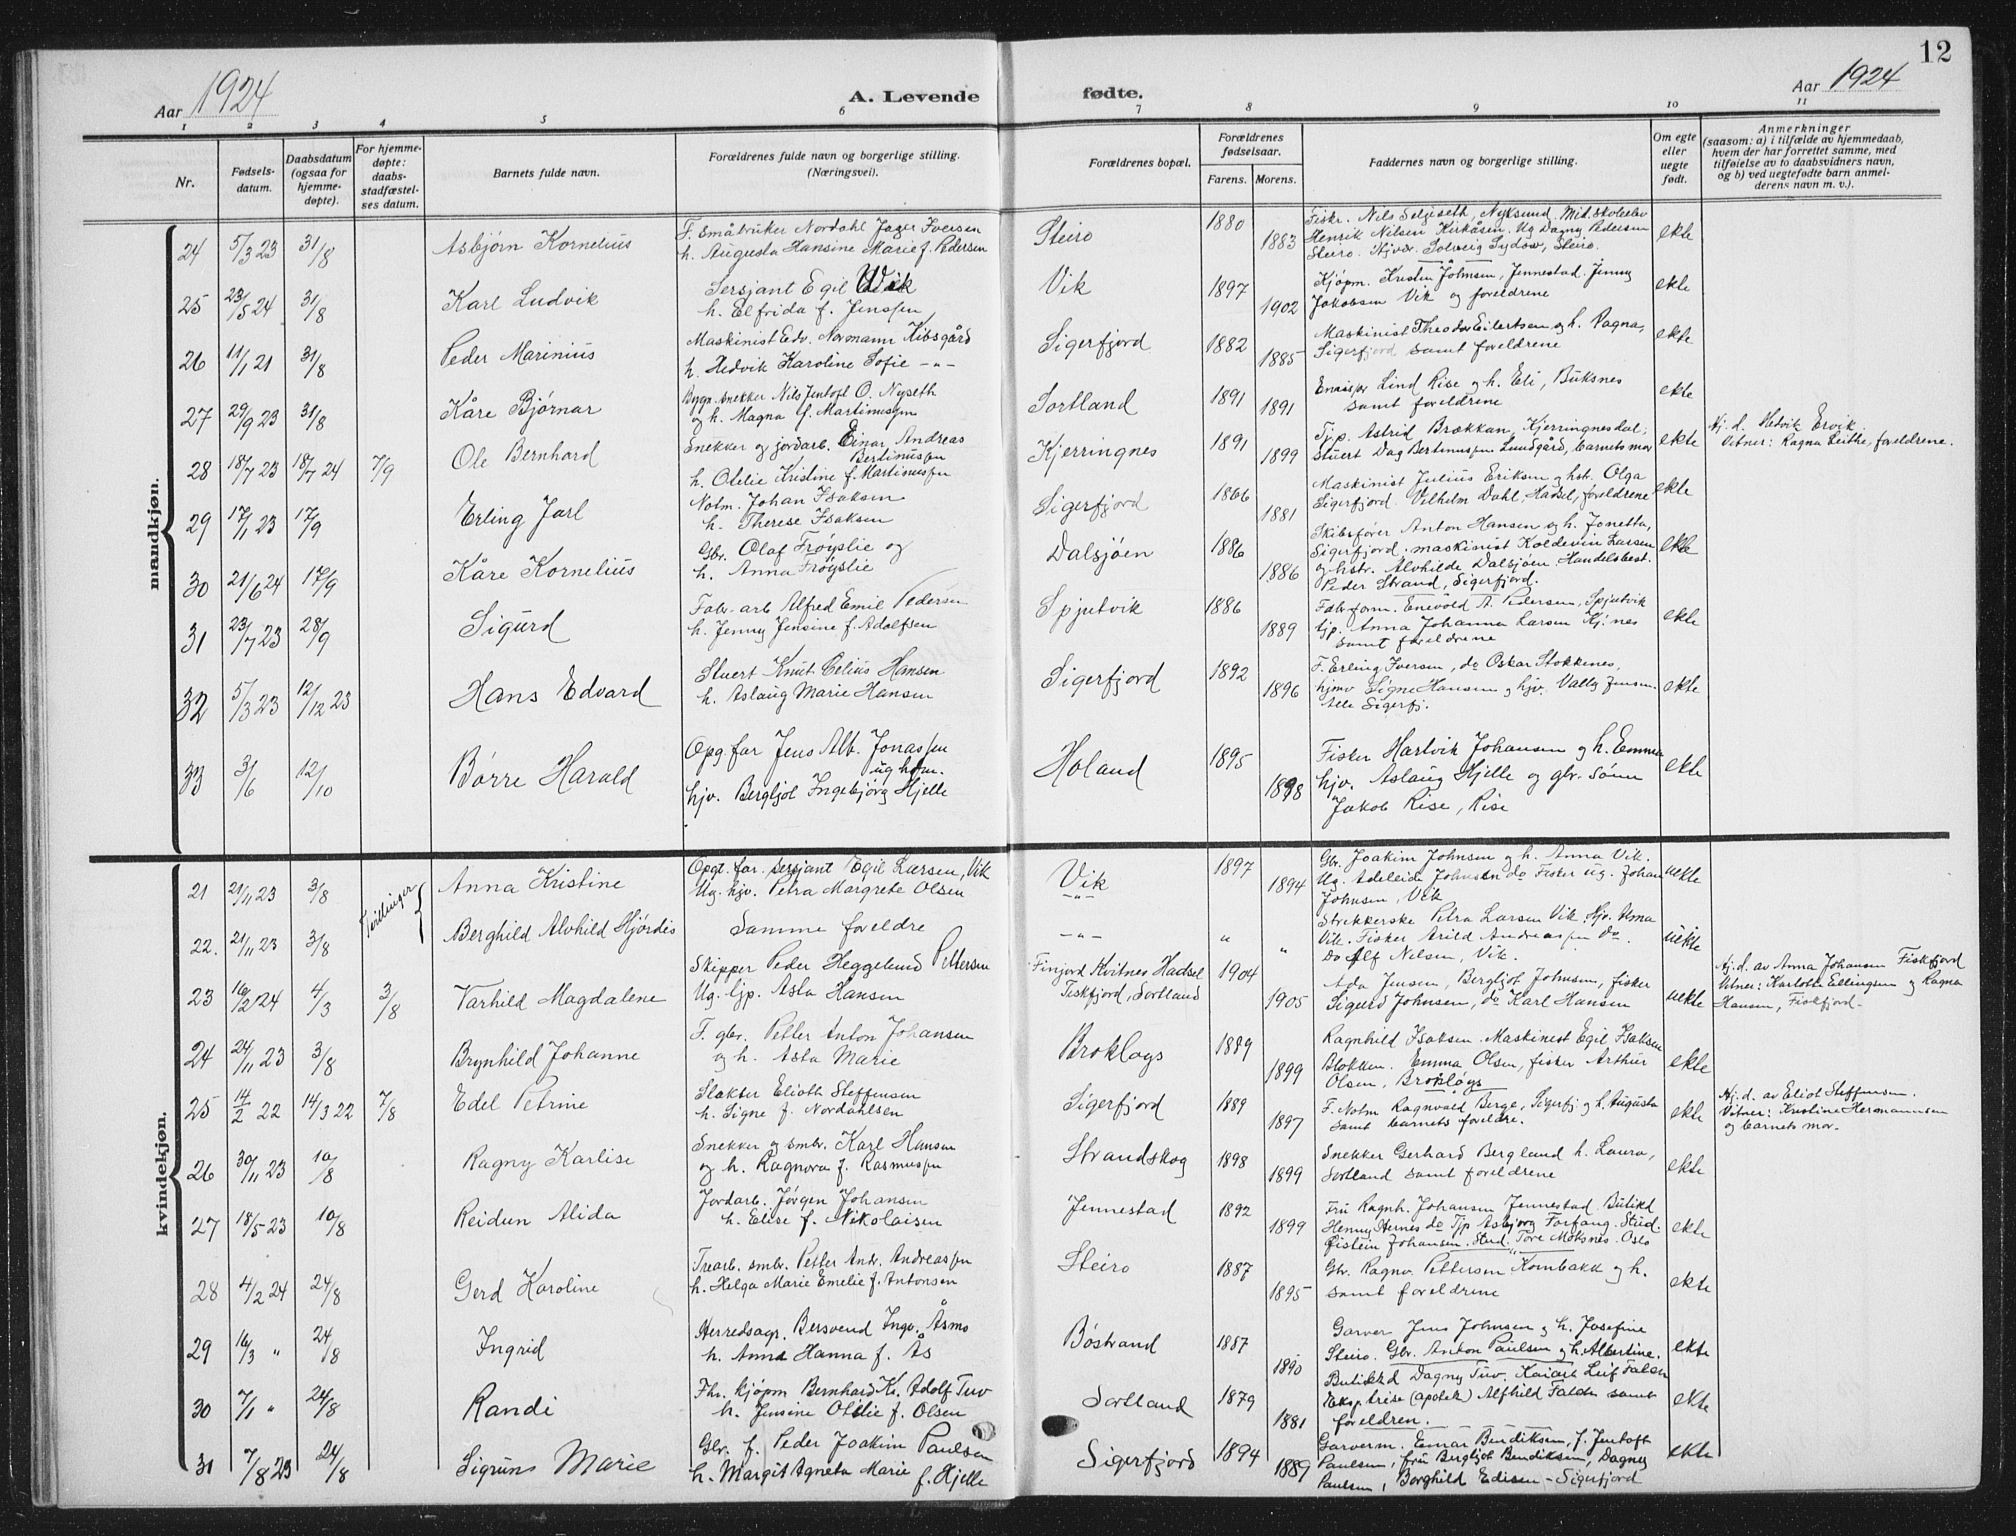 12
Aar 1924 A. Levende fødte. Aar 1924
1 2 3 4 5 6 7 8 9 10 11
Nr.
Fødsels-
datum.
Daabsdatum
(ogsaa for
hjemme-
døpte).
For hjemme-
døpte:
daabs-
stadfæstel-
ses datum.
Barnets fulde navn.
Forældrenes fulde navn og borgerlige stilling.
(Næringsvei).
Forældrenes bopæl.
Forældrenes
fødselsaar.
Farens. Morens.
Faddernes navn og borgerlige stilling.
Om egte
eller
uegte
født.
Anmerkninger
(saasom: a) i tilfælde av hjemmedaab,
hvem der har forrettet samme, med
tilføielse av to daabsvidners navn,
og b) ved uegtefødte barn anmel-
derens navn m. v.).
mandkjøn.
24 5/3 23 31/8 Asbjørn Kornelius
F. Småbruker Nordahl Jager Iversen
h. Augusta Hansine Marie f. Pedersen
Steiro 1880 1883
Fisker. Nils Seljeseth, Nyksund. Mid. skoleelev
Henrik Nilsen Kirkåsen. Ug. Dagny Pedersen
Steiro. Hjv. Solveig Sydow, Steiro.
ekte
25 23/5 24 31/8 Karl Ludvik
Sersjant Egil Wik
h. Elfrida f. Jenssen
Vik 1897 1902
Kjøpm. Kristen Johnsen, Jennestad. Jenny
Jakobsen Vik og foreldrene
ekte
26 11/1 21 31/8 Peder Marinius
Maskinist Edv. Normann Kibsgård
h. Hedvik Karoline Sofie -"-
Sigerfjord 1882 1885
Maskinist Theodor Eilertsen og h. Ragna,
Sigerfjord samt foreldrene
ekte
27 29/9 23 31/8 Kåre Bjørnar
Bygn. snekker Nils Jentoft O. Nyseth
og h. Magna f. Martinussen
Sortland 1891 1891
Lind Rise og h. Eli, Buksnes
samt foreldrene
ekte
28 18/7 23 18/7 24 7/9 Ole Bernhard
Snekker og jordarb. Einar Andreas
Bertinussen
h. Otelie Kristine f. Martinussen
Kjerringnes 1891 1899
Tjp. Astrid Brækkan, Kjerringnesdal;
Stuert Dag Bertinussen Lundgård, barnets mor
ekte
Hj. d. Hedvik Ervik.
Vitner: Ragna Leithe, foreldrene.
29 17/1 23 17/9 Erling Jarl
Notm. Johan Isaksen
h. Therese Isaksen
Sigerfjord 1866 1881
Maskinist Julius Eriksen og hst. Olga
Sigerfjord. Vilhelm Dahl, Hadsel, foreldrene
ekte
30 21/6 24 17/9 Kåre Kornelius
Gbr. Olaf Frøyslie og
h. Anna Frøyslie
Dalsjøen 1886 1886
Skibsfører Anton Hansen og h. Jonetta,
Sigerfjord. maskinist Koldevin Larsen
og hstr. Alvhilde Dalsjøen. Handelsbest.
Peder Strand, Sigerfjord.
ekte
31 23/7 23 28/9 Sigurd
Fabr. arb Alfred Emil Pedersen
h. Jenny Jensine f. Adolfsen
Spjutvik 1886 1889
Fabr.form. Enevold A. Pedersen, Spjutvik
tjp. Anna Johanna Larsen Kj.nes
samt foreldrene
ekte
32 5/3 23 12/12 23 Hans Edvard
Stuert Knut Celius Hansen
h. Aslaug Marie Hansen
Sigerfjord 1892 1896
F. Erling Iversen, do Oskar Stokkenes,
hjmv Signe Hansen og hjv. Valby Jensen.
Alle Sigerfj.
ekte
33 3/6 12/10 Børre Harald
Opg. far Jens Alb. Jonassen
ug hdm.
hjv. Bergljot Ingebjørg Hjelle
Holand 1895 1898
Fisker Hartvik Johansen og h. Emma
hjv. Aslaug Hjelle og gbr. Sønn
Jakob Rise, Rise
ekte
kvindekjøn.
21 21/11 23 3/8 Tvillinger Anna Kristine
Opgt. far. sersjant Egil Larsen, Vik
Ug. hjv. Petra Margrete Olsen
Vik 1897 1894
-"-
Gbr. Joakim Johnsen og h. Anna Vik.
Ug. Adeleide Johnsen do Fisker ug. Johan
Johnsen, Vik
uekte
22. 21/11 23 3/8 Berghild Alvhild Hjørdis
Samme foreldre
-"- " "
Strikkerske Petra Larsen Vik. Hjv. Alma
Vik. Fisker Arild Andreassen do.
Do Alf Nielsen, Vik.
uekte
23 16/2 24 4/3 3/8 Varhild Magdalene
Skipper Peder Heggelund Pettersen
Ug. tjp. Asta Hansen
Finjord Kvitnes Hadsel
Fiskfjord, Sortland 1904 1905
Ada Jensen, Bergljot Johnsen, fisker
Sigurd Johnsen, do Karl Hansen
uekte
Hj. d. av Anna Johansen Fiskfjord
Vitner: Karlotte Ellingsen og Ragna
Hansen, Fiskfjord.
24 24/11 23 3/8 Brynhild Johanne
F. gbr. Petter Anton Johansen
og h. Asta Marie
Brokløys 1889 1899
Ragnhild Isaksen. Maskinist Egil Isaksen
Blokken. Emma Olsen, fisker Arthur
Olsen, Brokløys
ekte
25 14/2 22 14/3 22 7/8 Edel Petrine
Slakter Elioth Steffensen
h. Signe f. Nordahlsen
Sigerfjord 1889 1897
F. Notm Ragnvald Berge, Sigerfj og h. Augusta
samt barnets foreldre.
ekte
Hj. d. av Eliot Steffensen.
Vitner: Kristine Hermannsen
og barnets mor.
26 30/11 23 10/8 Ragny Karlise
Snekker og smbr. Karl Hansen
og h. Ragnora f. Rasmussen
Strandskog 1898 1899
Snekker Gerhard Berglund h. Laura,
Sortland samt foreldrene
ekte
27 18/5 23 10/8 Reidun Alida
Jordarb. Jørgen Johansen
h. Elise f. Nikolaisen
Jennestad 1892 1899
Fru Ragnh. Johansen Jennestad. Butikd
Henny Hernes do Tjp Asbjørg Forfang. Stud.
Øistein Johansen. Stud. Tore Moksnes. Oslo
ekte
28 4/2 24 24/8 Gerd Karoline
Trearb. smbr. Petter Antr. Andreassen
h. Helga Marie Emelie f. Antonsen
Steiro 1887 1895
Gbr. Ragnv. Pettersen Kombakk og h.
samt foreldrene
ekte
29 16/3 " 24/8 Ingrid
Herredsagr. Bersvend Ingv. Åsmo
h. Anna Hanna f. Ås
Bøstrand 1887 1890
Garver Jens Johnsen og h. Josefine
Steiro. Gbr. Anton Paulsen og h. Albertine.
ekte
30 7/1 " 24/8 Randi
Fhr. kjøpm Bernhard K. Adolf Tuv
h. Jensine Otelie f. Olsen
Sortland 1879 1881
Butikkd Dagny Tuv. Leif Falch
Ekspetrise (apotek) Alfhild Falch samt
foreldren.
ekte
31 7/8 23 24/8 Sigruns Marie
Gbr. f. Peder Joakim Paulsen
h. Margit Agneta Marie f. Hjelle
Sigerfjord 1894 1889
Garverm. Einar Bendiksen, f. Jentoft
Paulsen, fru Bergljot Bendiksen, Dagny
Paulsen, Borghild Edisen - Sigerfjord
ekte